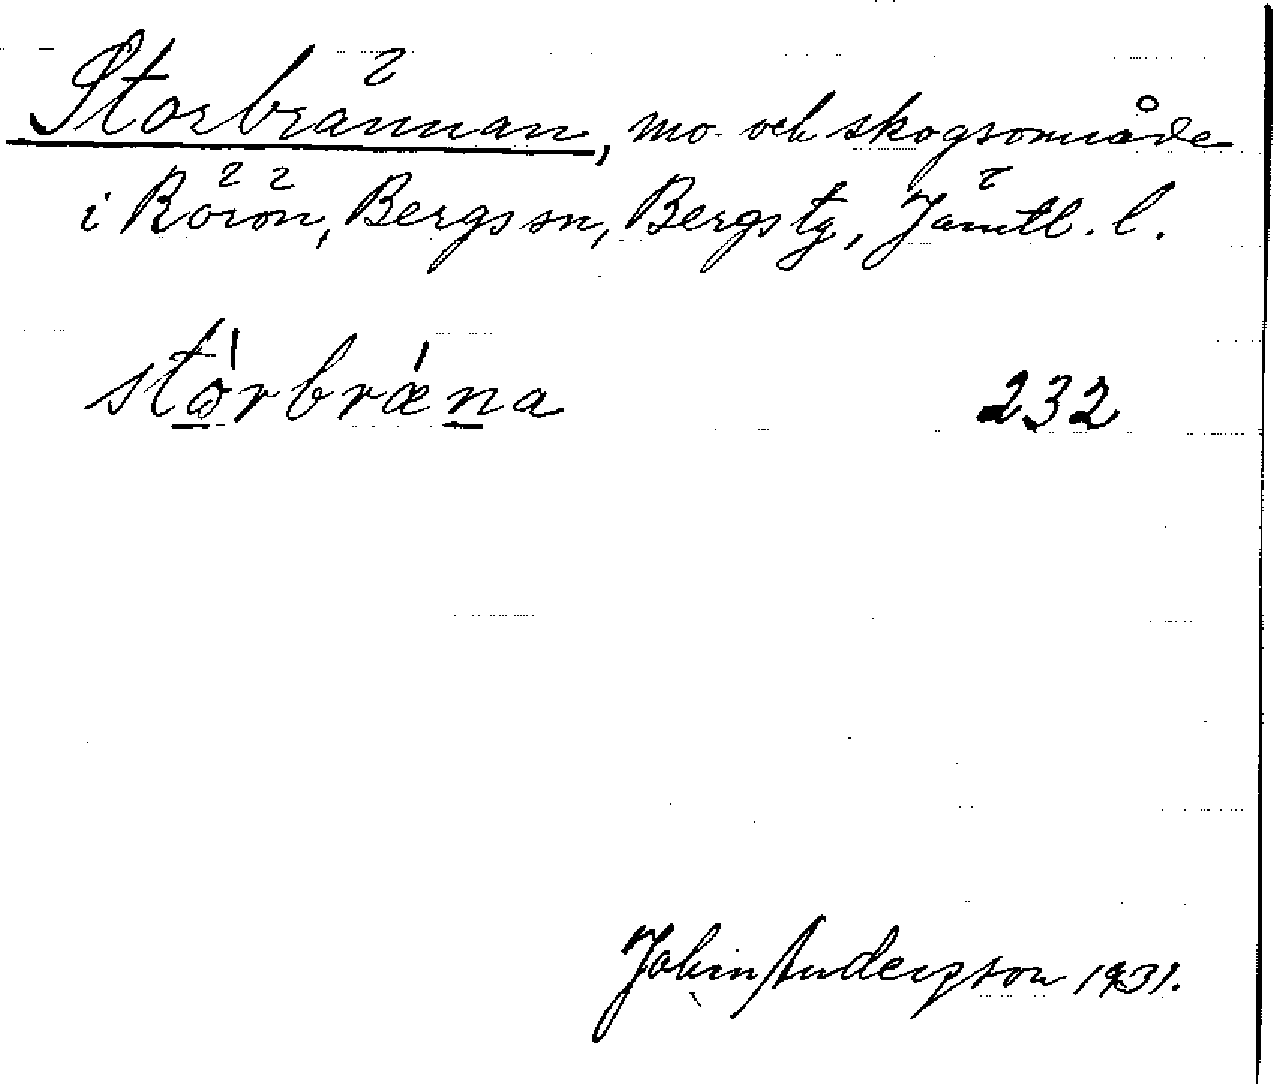 Storbrännan, mo och skogsområde
i Rörön, Bergs sn, Bergs tg, Jämtl. l.
stòrbræna 232
John Andersson 1931.